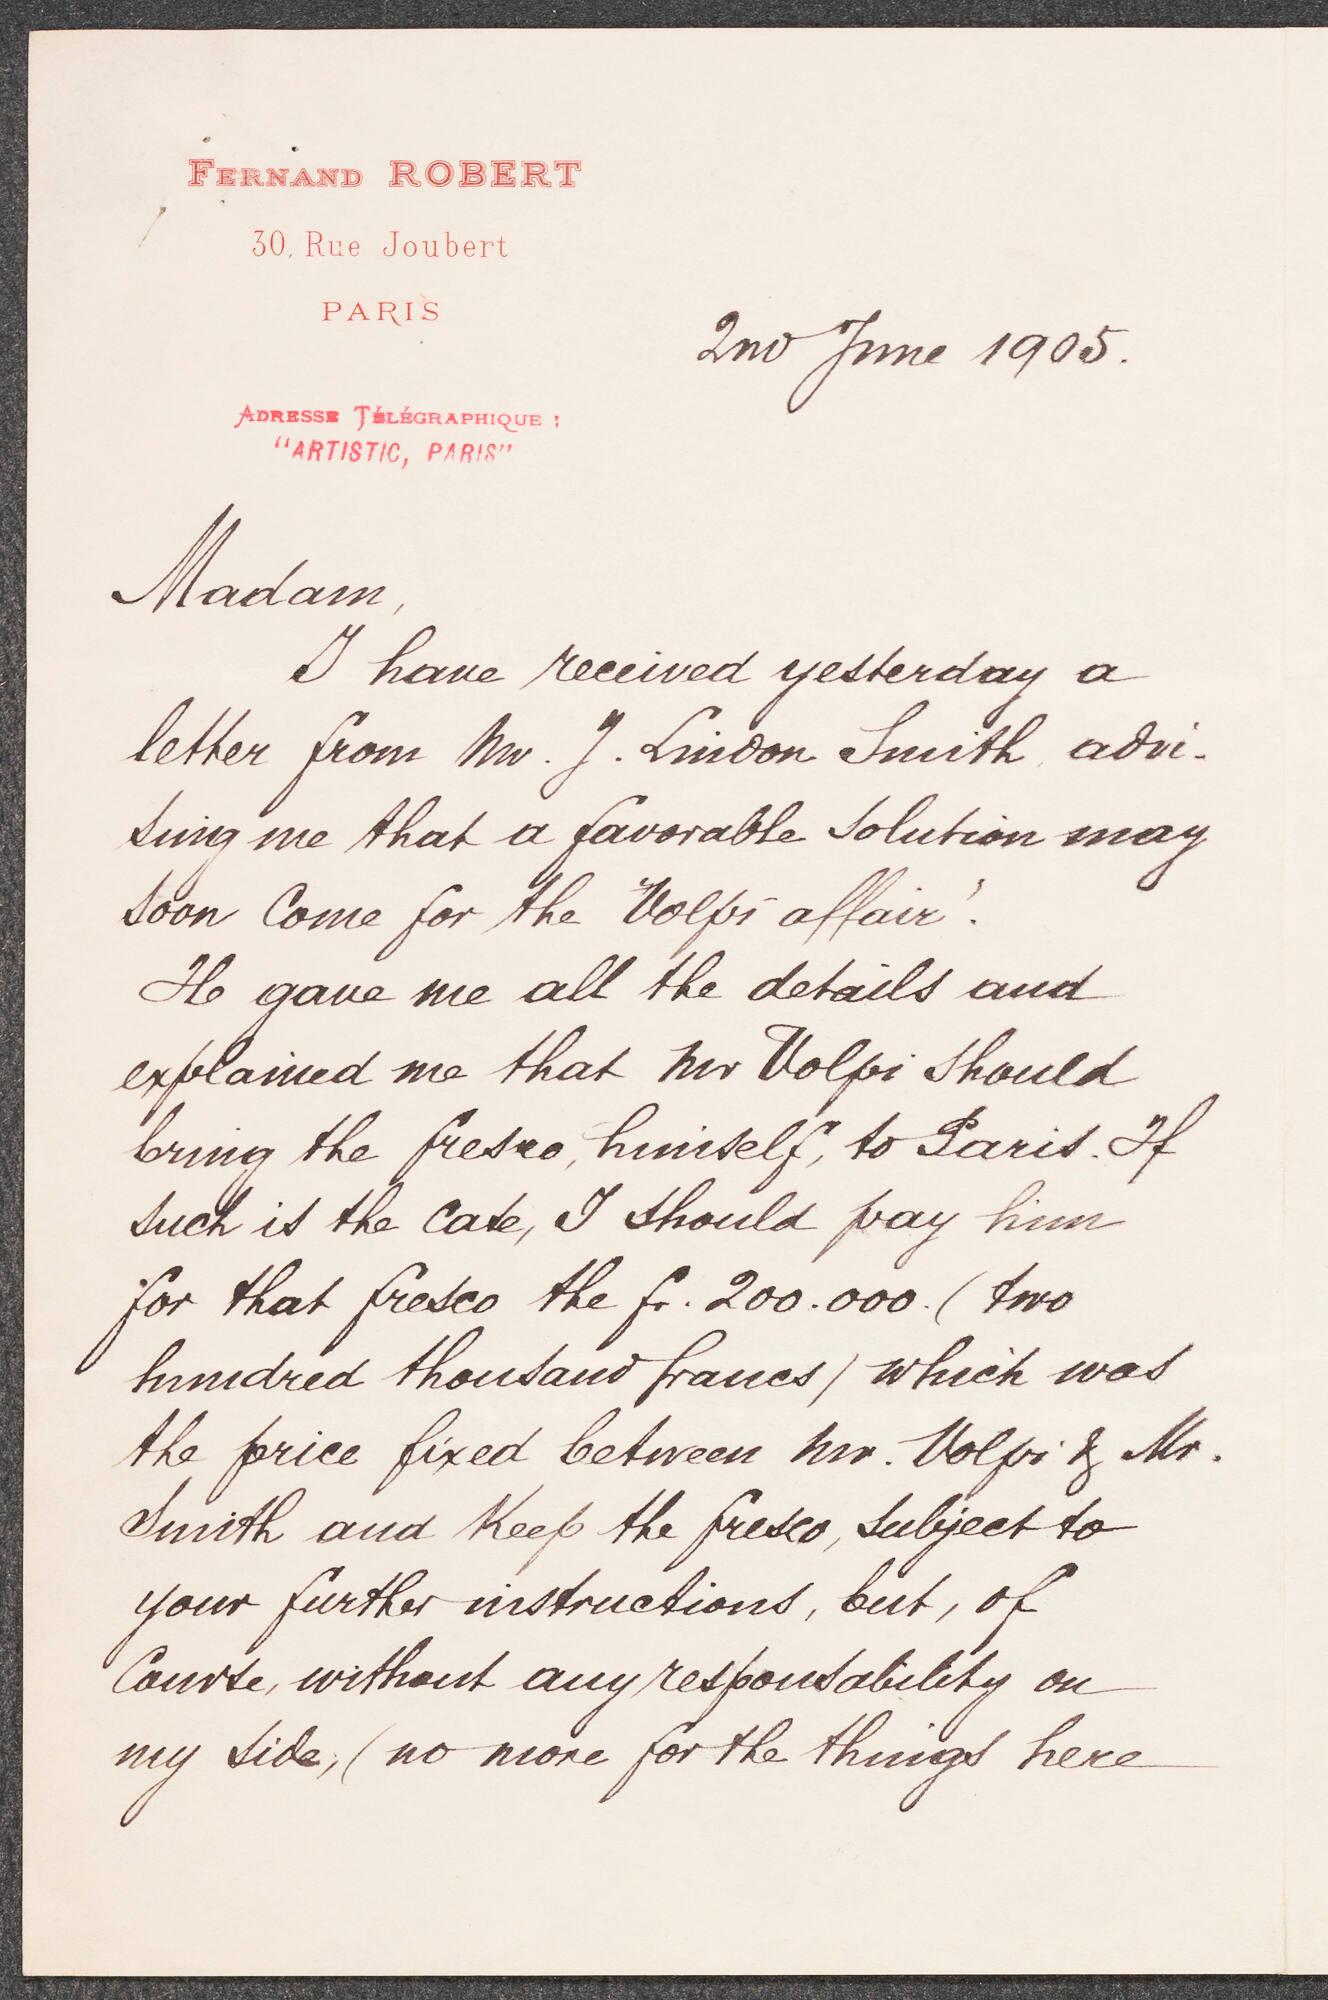 FERNAND ROBERT
30, Rue Joubert
PARIS
2nd June 1905.
ADRESSE TÉLÉGRAPHIQUE :
"ARTISTIC, PARIS"
Madam,
I have received yesterday a
letter from Mr. J. Lindon Smith, advi-
sing me that a favorable solution may
soon come for the "Volpi affair'.
He gave me all the details and
explained me that Mr Volpi should
bring the fresco, himself, to Paris. If
such is the case, I should pay him
for that fresco the fr. 200.000. (two
hundred thousand francs) which was
the price fixed between Mr. Volpi & Mr.
Smith and keep the fresco, subject to
your further instructions, but, of
course, without any responsability on
my side, (no more for the things here